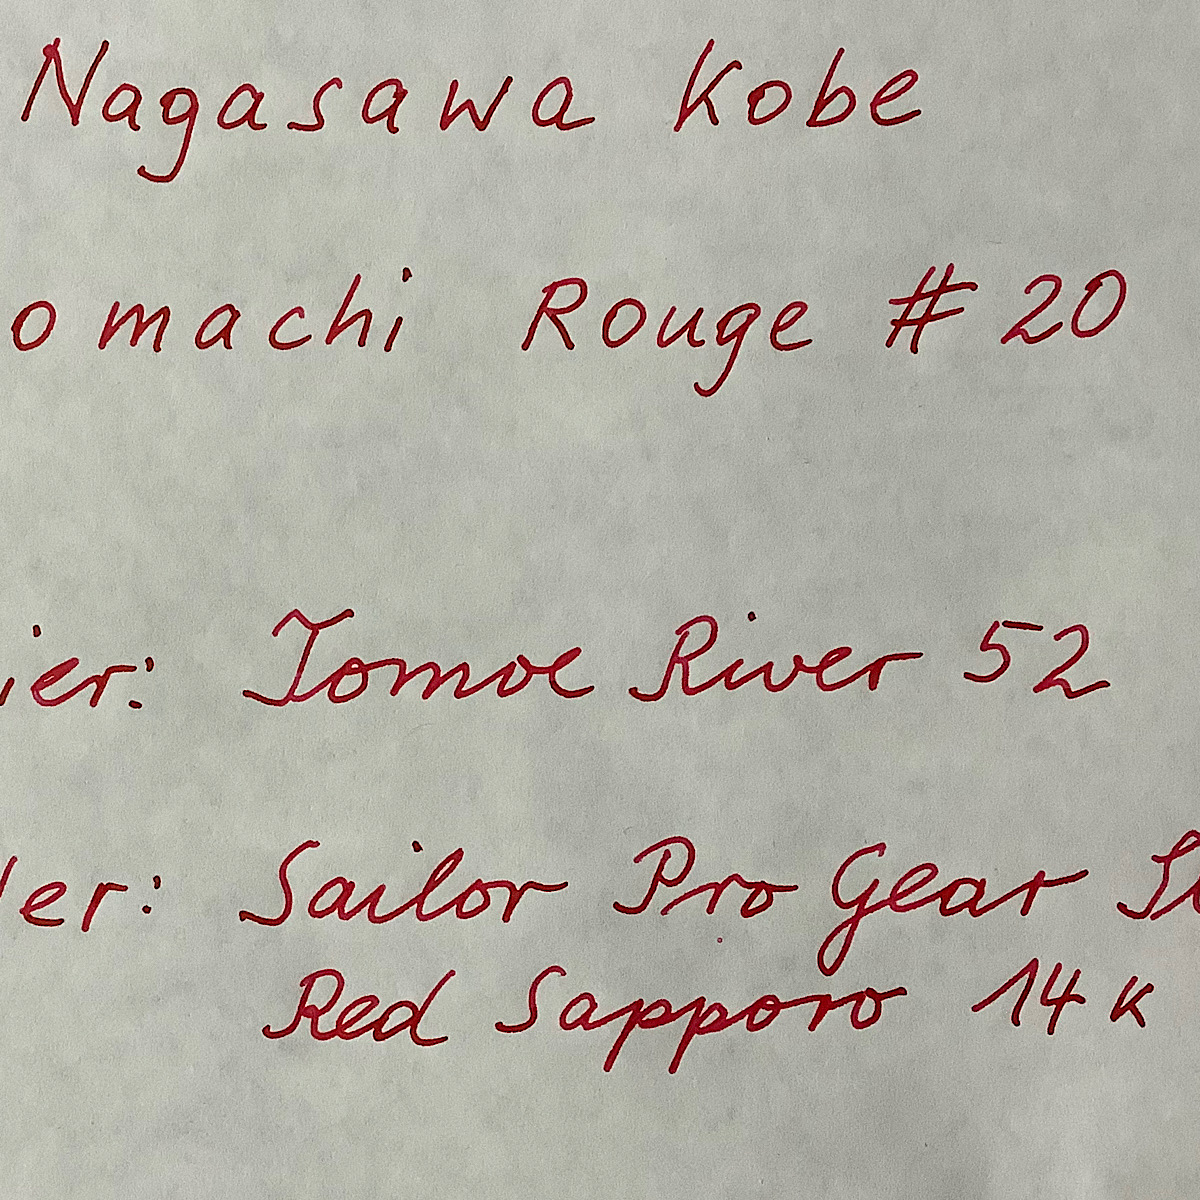 Nagasawa Kobe
omachi Rouge # 20
ier: Tomoe River 52
er: Sailor Pro Gear
Red Sapporo 14 K